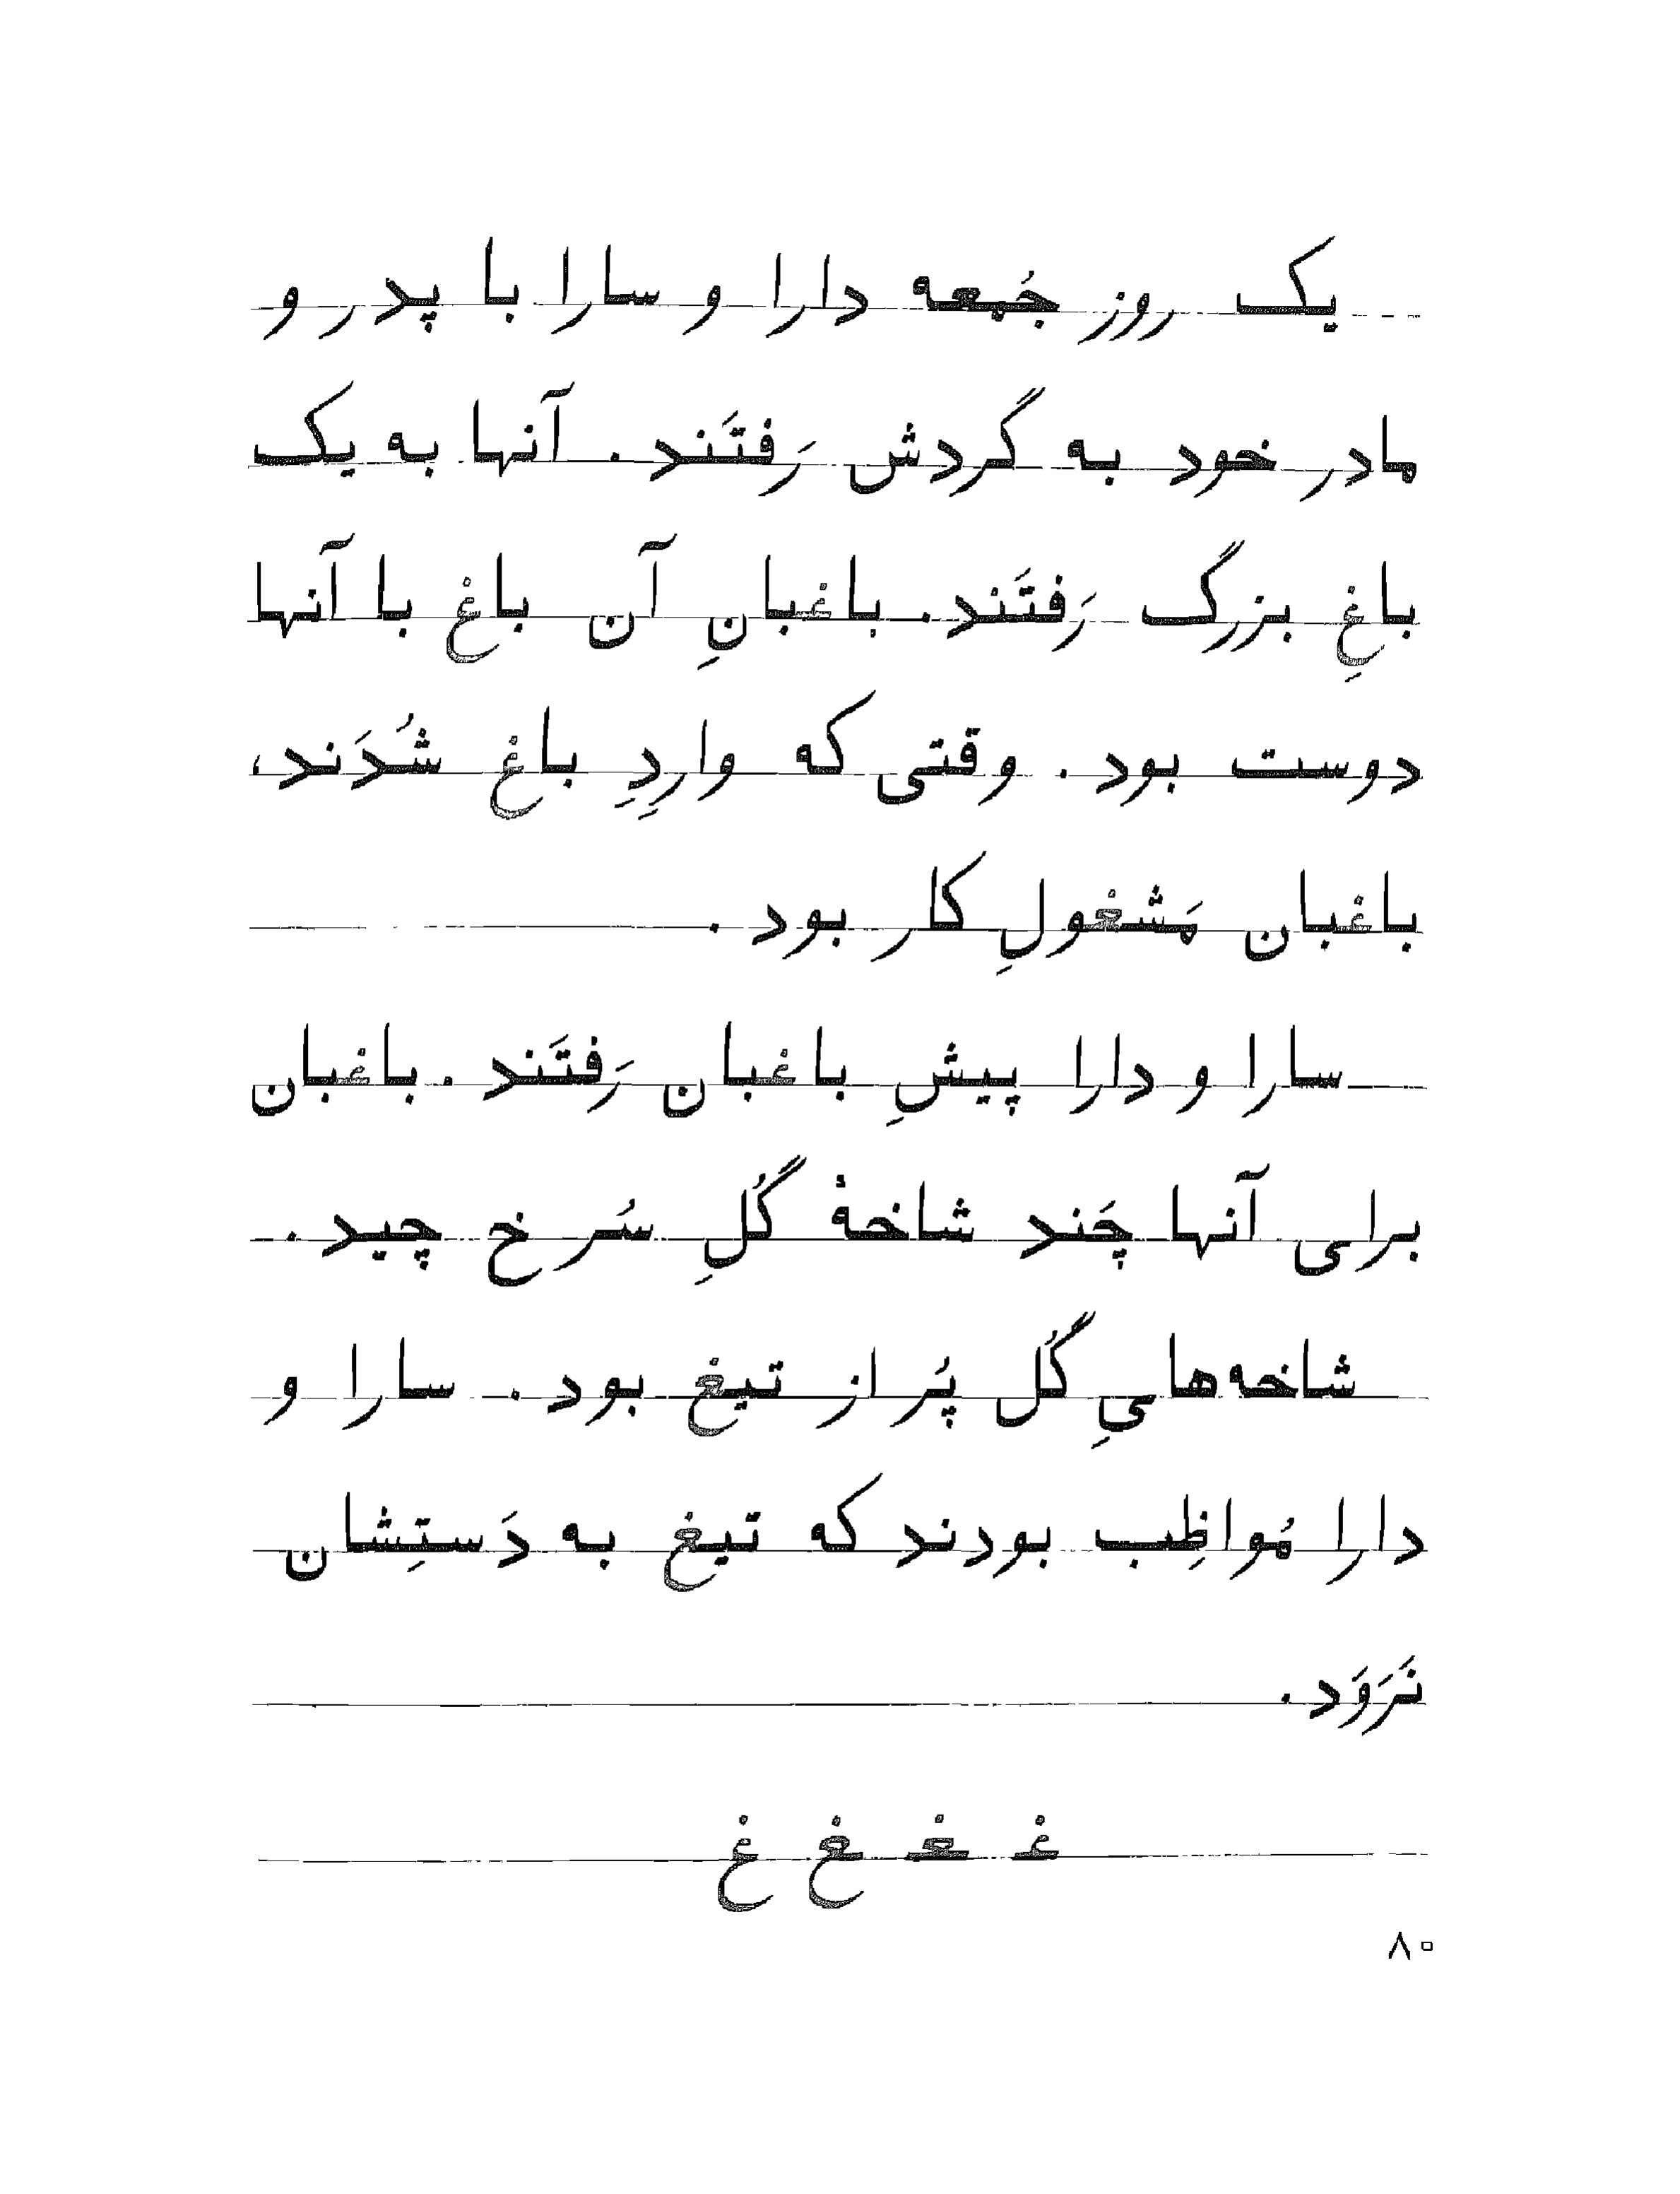 یک روز جُمعه دارا و سارا با پدر و
مادر خود به گردش رَفتَند. آنها به یک
باغِ بزرگ رَفتَند. باغبانِ آن باغ با آنها
دوست بود. وقتی که واردِِ باغ شُدَند،
باغبان مَشغولِ کار بود.
سارا و دارا پیشِ باغبان رَفتَند. باغبان
برای آنها چَند شاخهٔ گُلِ سُرخ چید.
شاخه‌هایِ گُل پُر از تیغ بود. سارا و
دارا مُواظِب بودند که تیغ به دَستِشان
نَرَوَد.
غـ ـغـ ـغ غ
۸۰